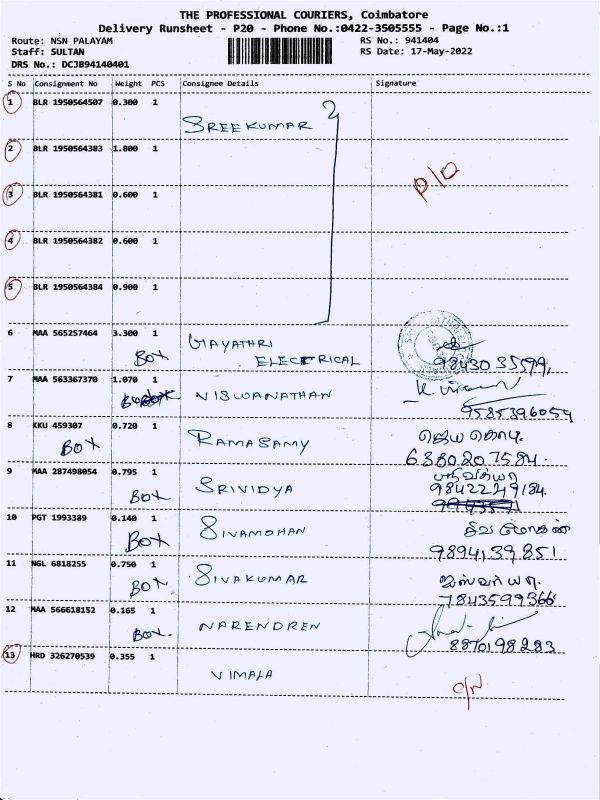 THE PROFESSIONAL COURIERS, Coimbatore
Delivery Runsheet - P20 - Phone No.:0422-3505555 - Page No.:1
Route: NSN PALAYAM RS No.: 941404
Staff: SULTAN RS Date: 17-May-2022
DRS No.: DCJB94140401
S No Consignment No Weight PCS Consignee Details Signature
1 BLR 1950564507 0.300 1
SREEKUMAR
2 BLR 1950564383 1.800 1
3 BLR 1950564381 0.600 1
4 BLR 1950564382 0.600 1
5 BLR 1950564384 0.900 1
6 MAA 565257464 3.300 1 GAYATHRI
BOX ELECTRICAL 9843035599,
7 MAA 563367370 1.070 1
VISWANATHAN
9585396059
8 KKU 459307 0.720 1
BOX RAMASAMY ஜெய கொடி
6380207584.
9 MAA 287498054 0.795 1
BOX SRIVIDYA 9842249184.
10 PGT 1993389 0.140 1
BOX SIVAMOHAN சிவ மோகன்
9894139851
11 NGL 6818255 0.750 1
BOX SIVAKUMAR ஐஸ்வர்யா.
7843599366
12 MAA 566618152 0.165 1
BOX. NARENDREN
8870198283
13 HRD 326270539 0.355 1
VIMALA